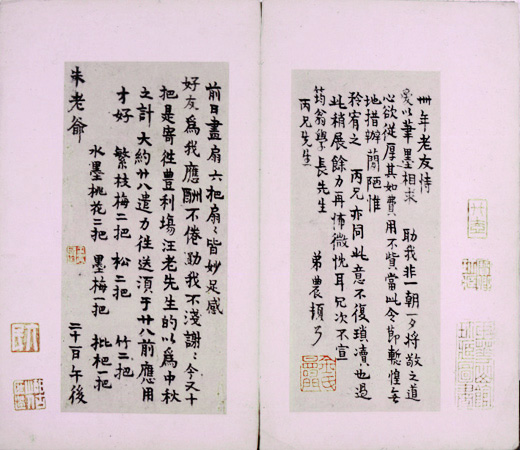 卅年老友恃
愛以筆墨相求 助我非一朝一夕將敬之道
心欲從厚其如費用不貲當此令節蹔惶無
地措辦簡陋惟
矜宥之 丙兄亦同此意不復瑣瀆也過
此稍展餘力再佈微忱耳冗次不宣
筠翁學長先生 弟農頓
丙兄先生
前日畫扇六把扇〻皆妙足感
好友為我應酬不倦助我不淺謝〻今又十
把是寄往豐利塲汪老先生的以為中秋
之計大約廿八遣力往送須于廿八前應用
才好 繁枝梅二把 松二把 竹二把
水墨桃花二把 墨梅一把 枇杷一把
朱老爺 二十一日午後